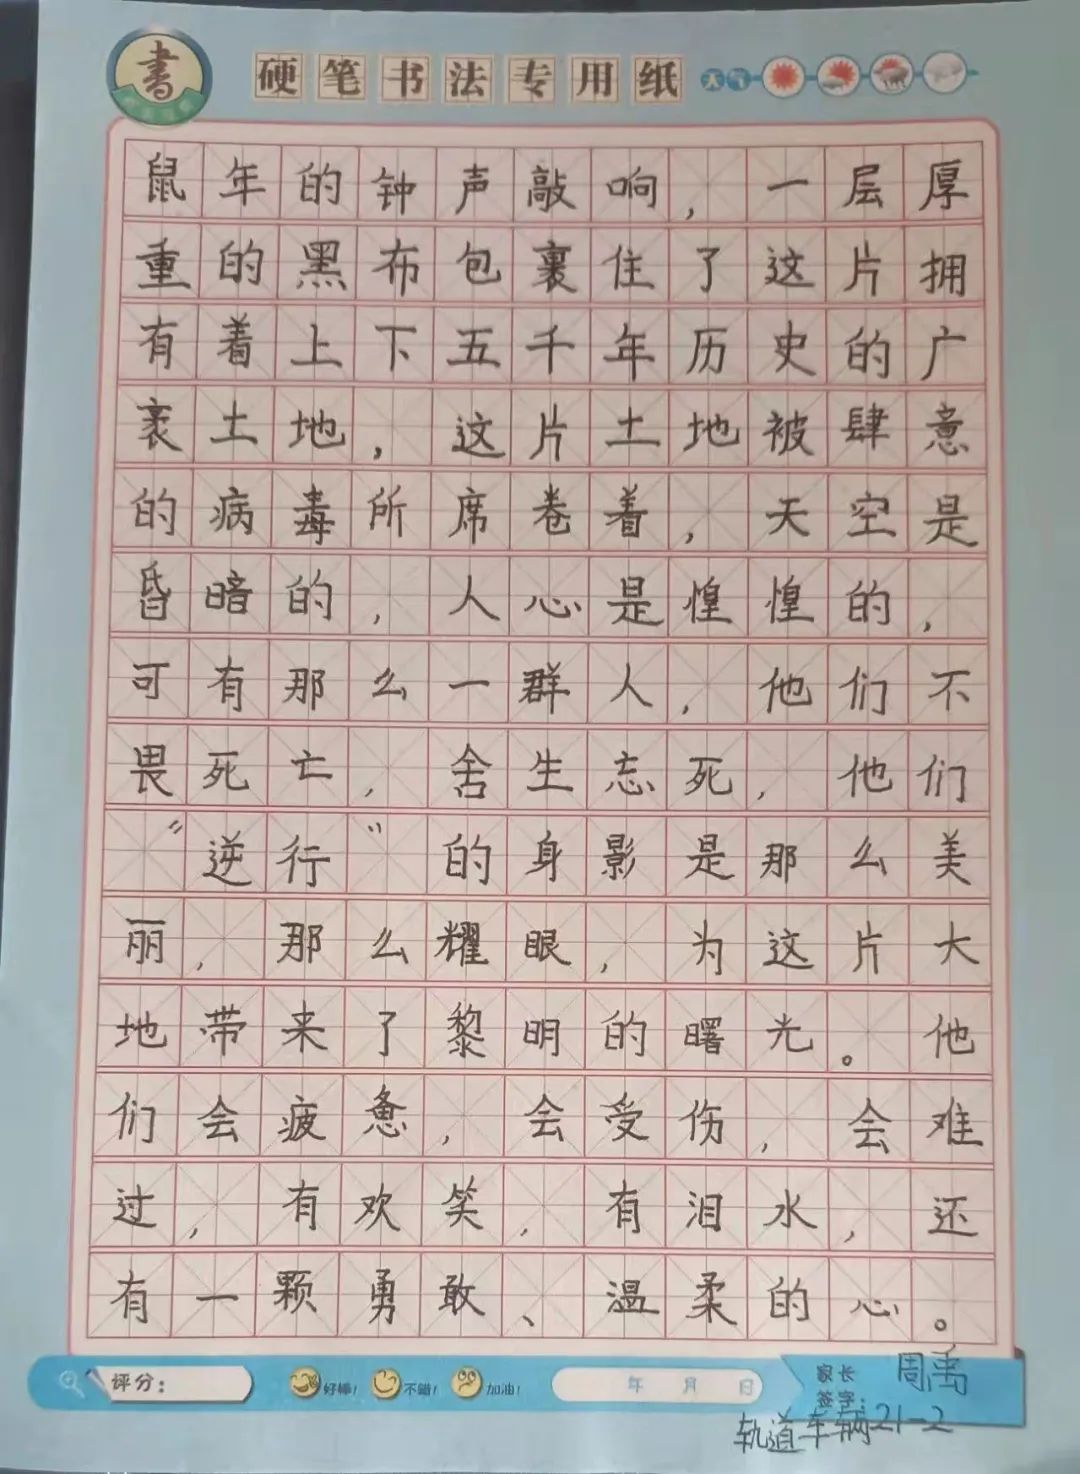 書
硬笔书法专用纸 天气
鼠年的钟声敲响，一层厚
重的黑布包裹住了这片拥
有着上下五千年历史的广
袤土地，这片土地被肆意
的病毒所席卷着，天空是
昏暗的，人心是惶惶的，
可有那么一群人，他们不
畏死亡，舍生忘死，他们
“逆行”的身影是那么美
丽，那么耀眼，为这片大
地带来了黎明的曙光。他
们会疲惫，会受伤，会难
过，有欢笑，有泪水，还
有一颗勇敢、温柔的心。
评分： 好棒！ 不错！ 加油！ 年 月 日 家长签字： 周禹
轨道车辆21-2